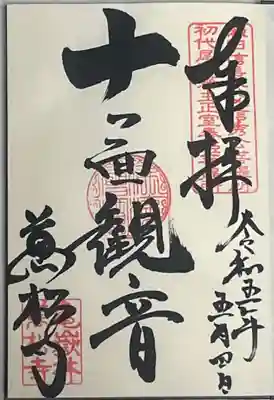 奉拝
令和五年
五月四日
十一面観音
萬松寺